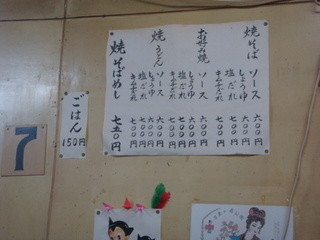 焼そば ソース 六〇〇円
しょうゆ 六〇〇円
塩だれ 六〇〇円
キムチだれ 七〇〇円
お好み焼 ソース 六〇〇円
しょうゆ 六〇〇円
塩だれ 六〇〇円
キムチだれ 七〇〇円
焼うどん ソース 六〇〇円
しょうゆ 六〇〇円
塩だれ 六〇〇円
キムチだれ 七〇〇円
焼そばめし 七五〇円
ごはん 150円
7